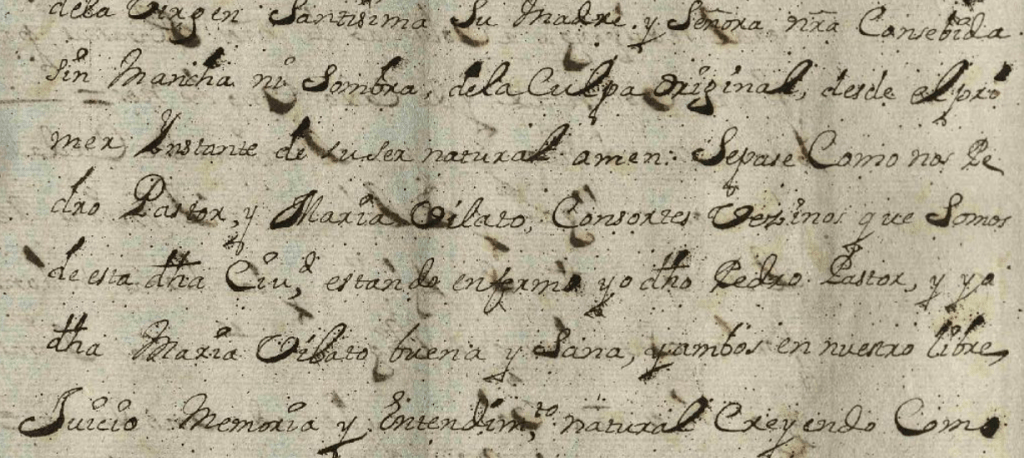 dela Virgen Santisima Su Madre y Señora nr̃a Consebida
sin Mancha ni Sombra, dela Culpa original, desde el pri
mer Ynstante de su ser natural amen: Sepase Como nos Pe
dro Pastor, y Maria Vilato, Consortes Vezinos que Somos
de esta dha Ciu.d, estando enfermo yo dho Pedro Pastor, y yo
dha Maria Vilato buena y Sana, y ambos en nuestro libre,
Juicio Memoria y Entendim.to natural Creyendo Como